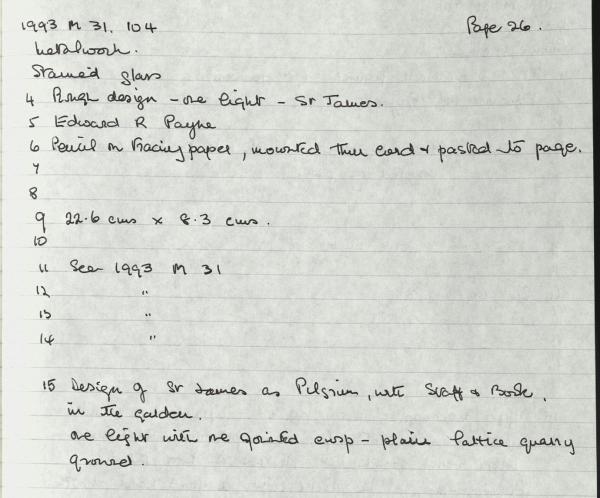 1993 M 31. 104 Page 26.
Metalwork.
Stained glass
4 Rough design - one light - St James.
5 Edward R Payne
6 Pencil on tracing paper, mounted thin card & pasted to page.
7
8
9 22.6 cms x 8.3 cms.
10
11 See 1993 M 31
12 "
13 "
14 "
15 Design of St James as Pilgrim, with Staff & Book,
in the garden.
one light with one pointed cusp - plain lattice quarry
ground.